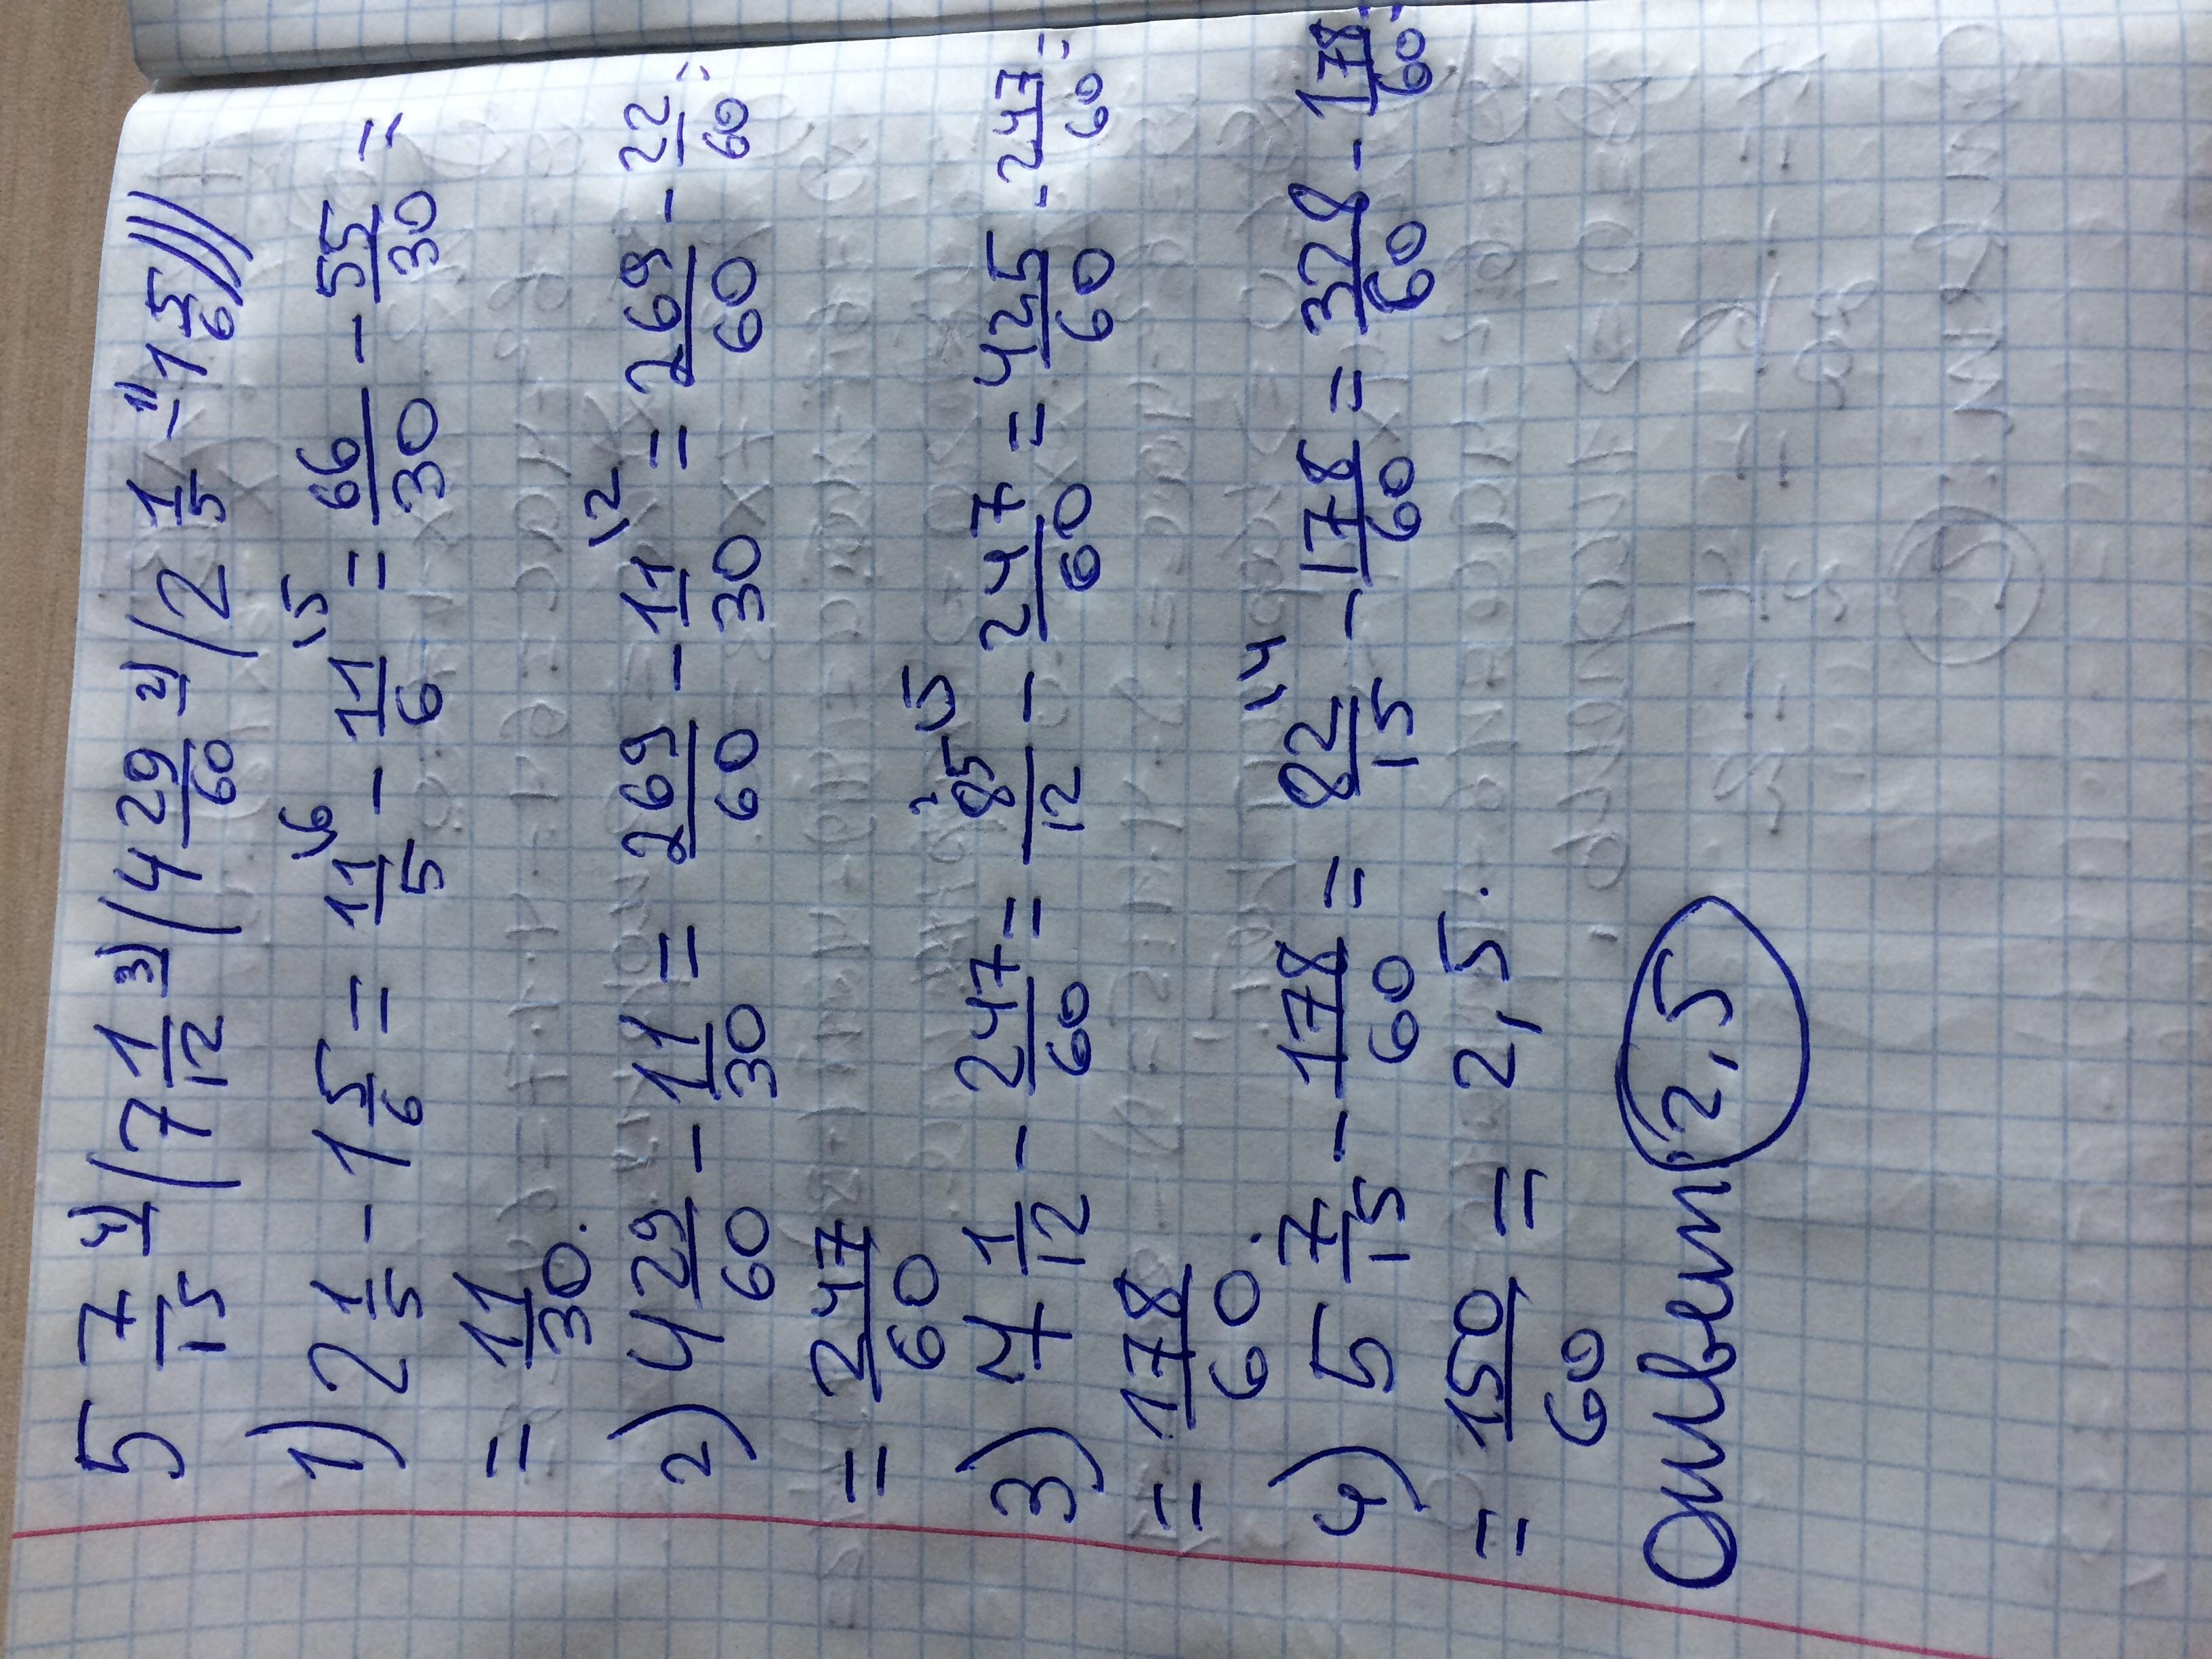 5 7/15 4) (7 1/12 3) (4 29/60 2) (2 1/5 -1) 1 5/6)))
1) 2 1/5 - 1 5/6 = 11/5 \6 - 11/6 \5 = 66/30 - 55/30 =
= 11/30.
2) 4 29/60 - 11/30 = 269/60 - 11/30 \2 = 269/60 - 22/60 =
= 247/60
3) 7 1/12 - 247/60 = 85/12 \5 - 247/60 = 425/60 - 247/60 =
= 178/60.
4) 5 7/15 - 178/60 = 82/15 \4 - 178/60 = 328/60 - 178/60 =
= 150/60 = 2,5.
Ответ 2,5